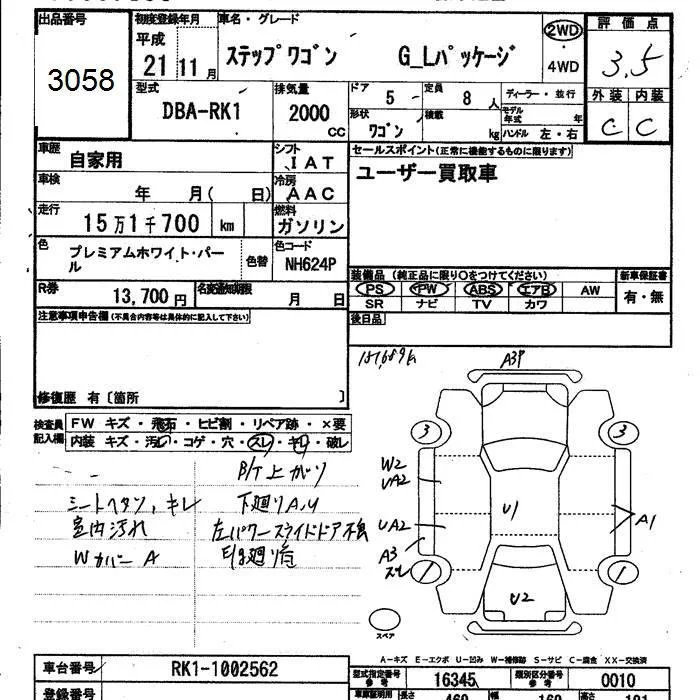 出品番号
3058
初度登録年月
平成
21 11 月
車名・グレード
ステップワゴン G_Lパッケージ
2WD
・
4WD
評価点
3.5
外装 内装
C C
型式
DBA-RK1
排気量
2000
CC
ドア 5
定員 8 人
形状 ワゴン
積載 kg
ディーラー・並行
モデル年式 年
ハンドル 左・右
車歴
自家用
シフト
IAT
セールスポイント(正常に機能するものに限ります)
ユーザー買取車
車検
年 月( 日)
冷房
AAC
走行
15万1千700 km
燃料
ガソリン
色
プレミアムホワイト・パール
色替
色コード
NH624P
R券
13,700 円
名変通知期限
月 日
装備品 (純正品に限り○をつけてください)
PS PW ABS エアB AW
SR ナビ TV カワ
新車保証書
有・無
後日品
注意事項申告欄(不具合内容等は具体的に記入して下さい)
修復歴 有〔箇所 〕
検査員記入欄
FW キズ・飛石・ヒビ割・リペア跡・×要
内装 キズ・汚レ・コゲ・穴・スレ・キレ・破レ
151,689k
A3P
3 3
W2
UA2
UA2
A3
スレ
U1
A1
1 1
U2
スペア
B/T上がり
シートヘタリ、キレ
下廻りA,U
室内汚れ
左パワースライドドア不良
Wカバー A
A-キズ E-エクボ U-凹み W-補修跡 S-サビ C-腐食 XX-交換済
車台番号
RK1-1002562
型式指定番号
参考
16345
類別区分番号
参考
0010
登録番号
車庫証明用
長さ
469
幅
169
高さ
181